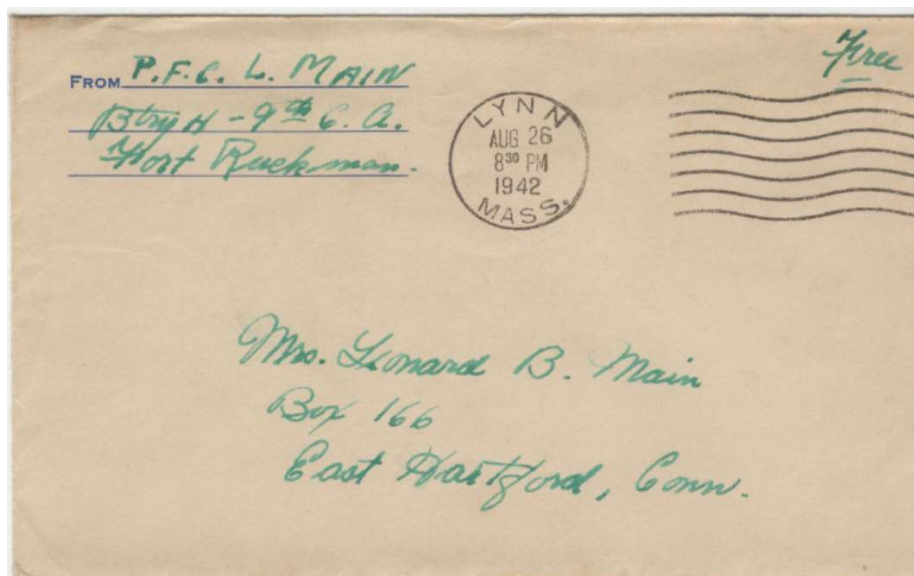 Free
FROM P.F.C. L. MAIN
Btry H - 9th C. A.
Fort Ruckman.
LYNN
AUG 26
8 30 PM
1942
MASS.
Mrs. Leonard B. Main
Box 166
East Hartford, Conn.